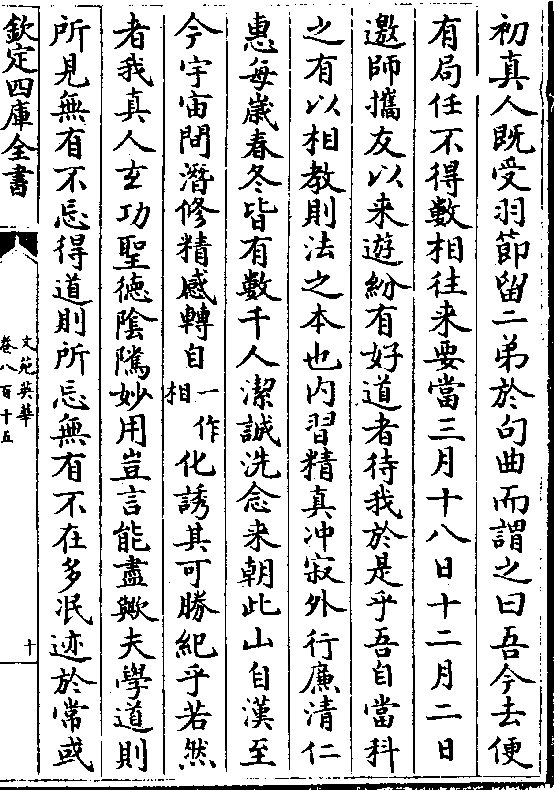 初真人既受羽節留二弟於句曲而謂之曰吾今去便
有局任不得數相往来要當三月十八日十二月二日
邀師攜友以来遊紛有好道者待我於是乎吾自當料
之有以相教則法之本也内習精真冲寂外行㢘清仁
惠每歳春冬皆有數千人潔誠洗念来朝此山自漢至
今宇宙間潛修精感轉自一作相化誘其可勝紀乎若然
者我真人玄功聖德隂隲妙用豈言能盡歟夫學道則
所見無有不忘得道則所忘無有不在多泯迹於常或
欽定四庫全書
文苑英華
卷八百十五
十